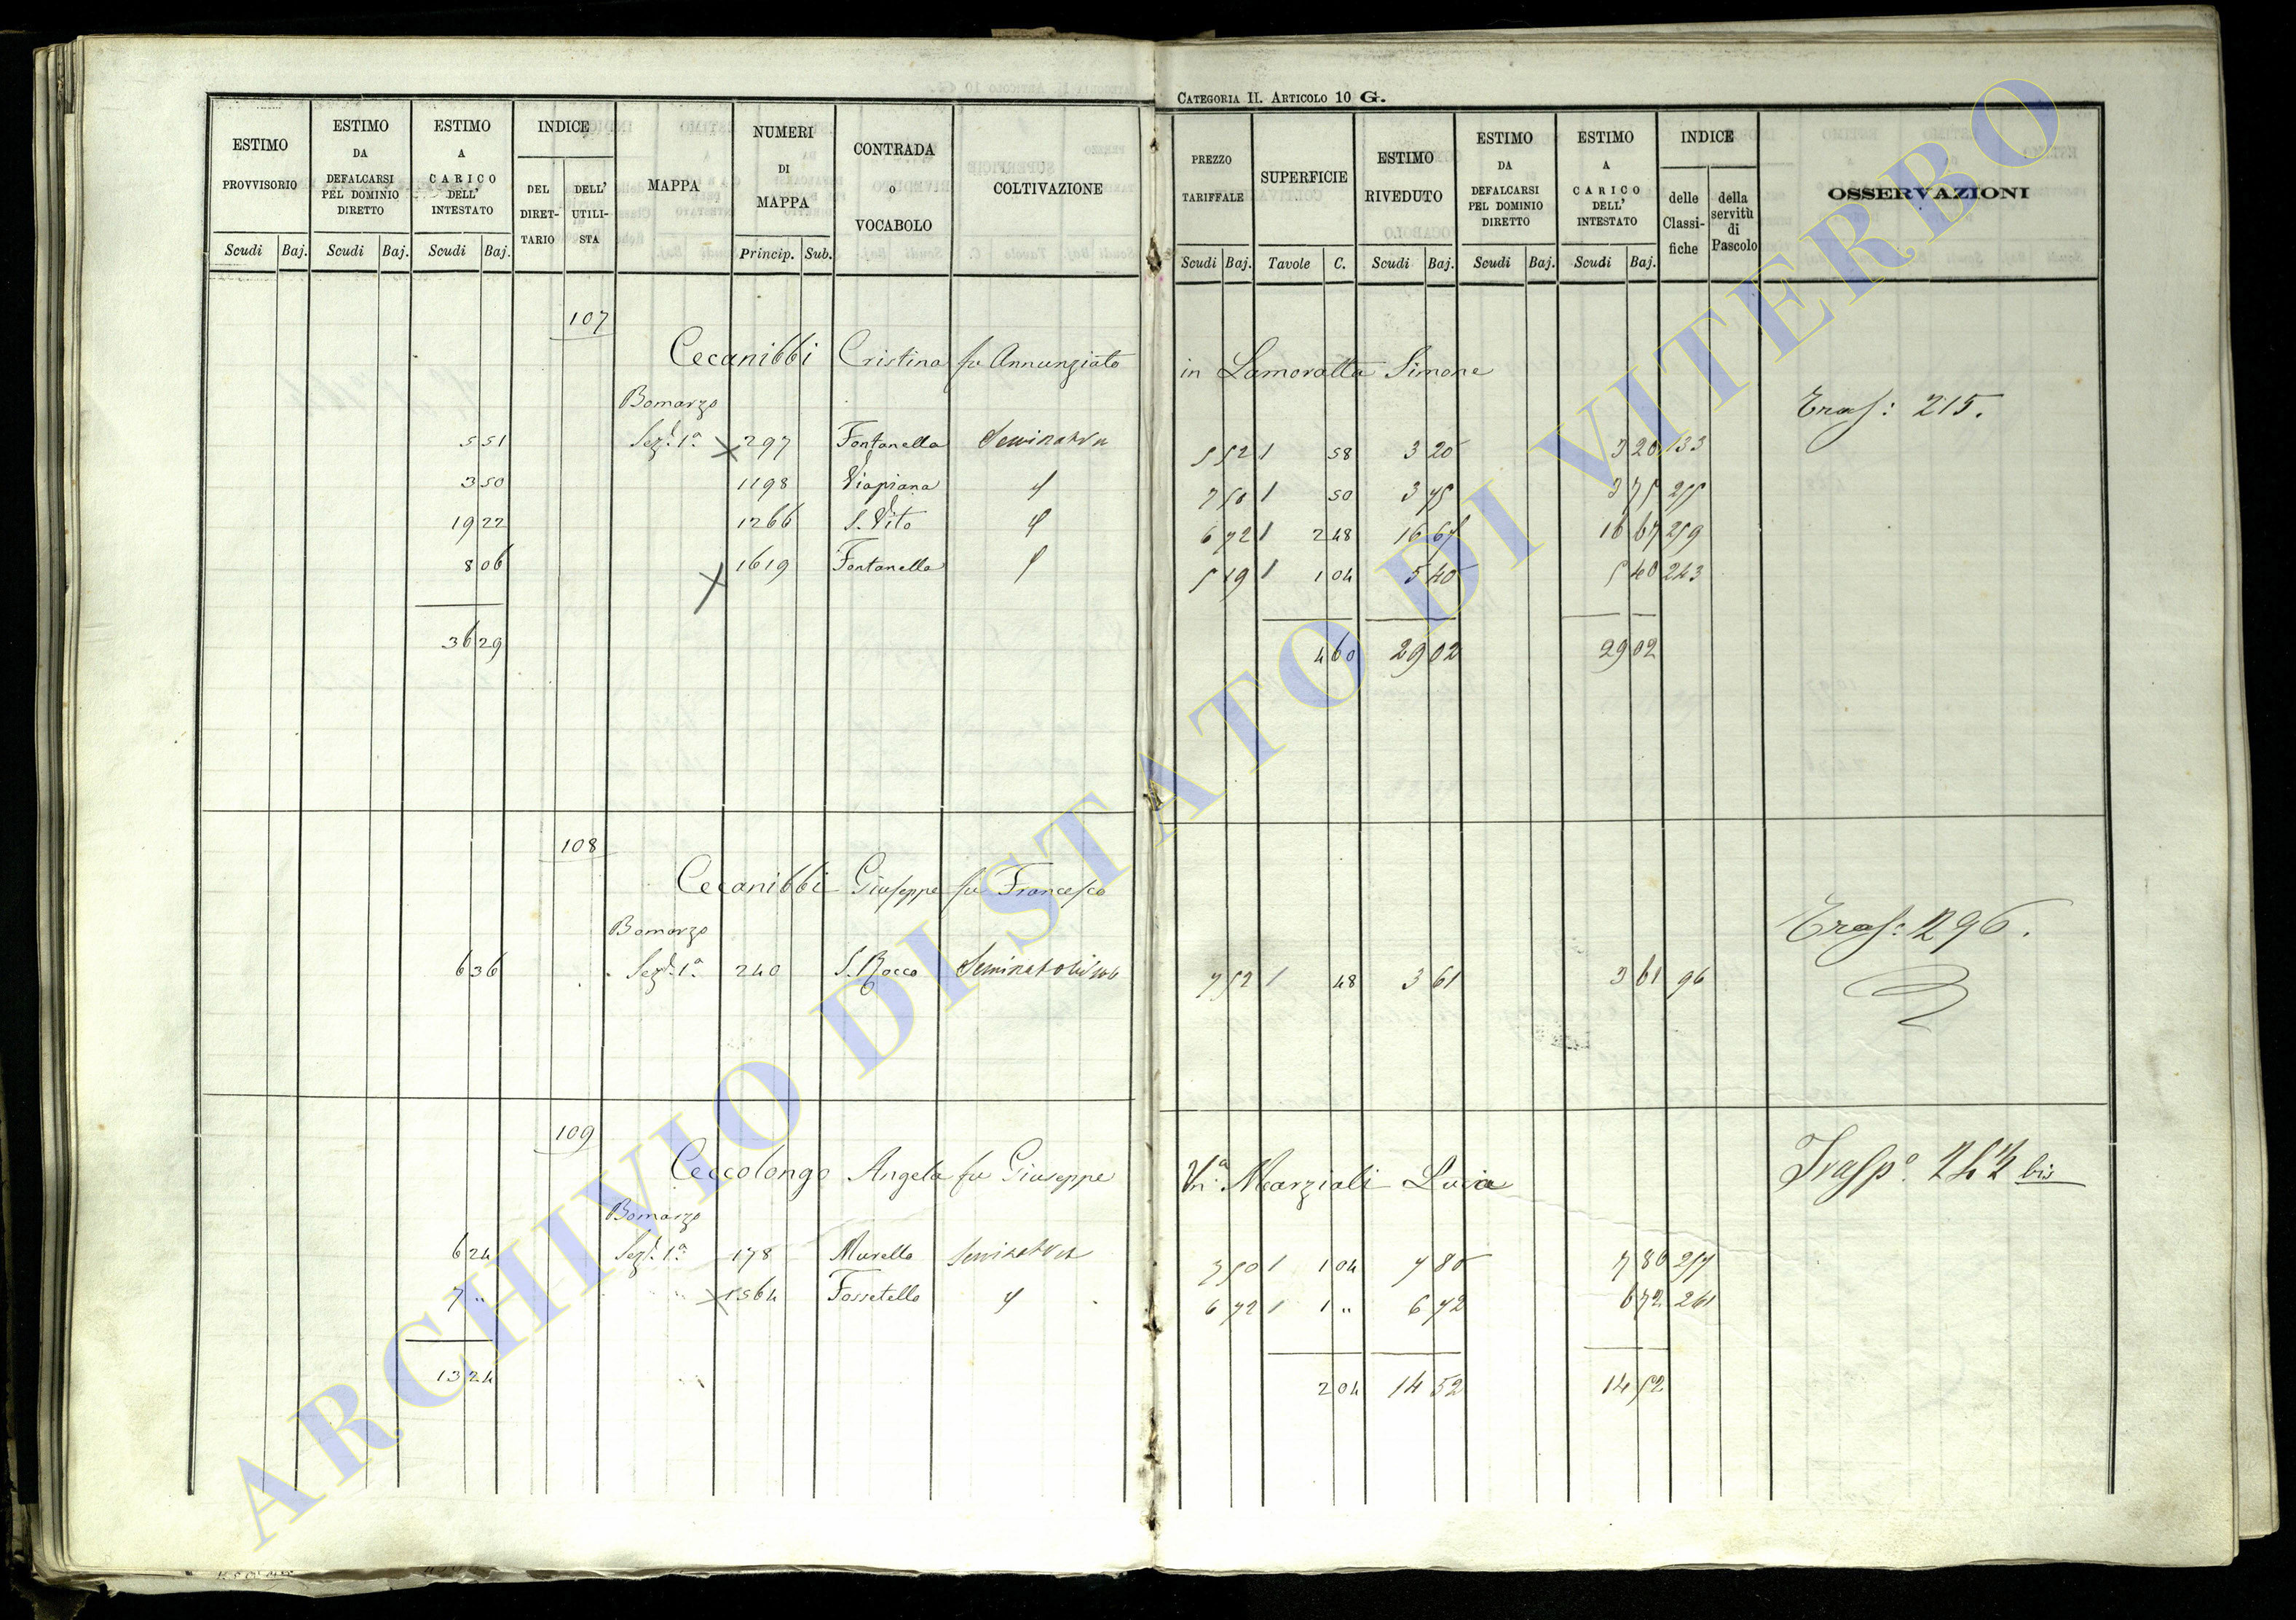 CATEGORIA II. ARTICOLO 10 G.
ESTIMO PROVVISORIO Scudi Baj.
ESTIMO DA DEFALCARSI PEL DOMINIO DIRETTO Scudi Baj.
ESTIMO A CARICO DELL' INTESTATO Scudi Baj.
INDICE DEL DIRET- TARIO DELL' UTILI- STA
MAPPA
NUMERI DI MAPPA Princip. Sub.
CONTRADA o VOCABOLO
COLTIVAZIONE
PREZZO TARIFFALE Scudi Baj.
SUPERFICIE Tavole C.
ESTIMO RIVEDUTO Scudi Baj.
ESTIMO DA DEFALCARSI PEL DOMINIO DIRETTO Scudi Baj.
ESTIMO A CARICO DELL' INTESTATO Scudi Baj.
INDICE delle Classi- fiche della servitù di Pascolo
OSSERVAZIONI
107
Cecanibbi Cristina fu Annunziato in Lamoratta Simone
Bomarzo Tras: 215.
5 51 Sez. 1a 297 Fontanella Seminativo 5 52 1 58 3 20 3 20 133
3 50 1198 Viapiana 7 50 1 50 3 75 3 75 255
19 22 1266 S. Vito 6 72 1 2 48 16 67 16 67 259
8 06 1619 Fontanella 5 19 1 1 04 5 40 5 40 243
36 29 4 60 29 02 29 02
108
Cecanibbi Giuseppe fu Francesco
Bomarzo Tras: 296.
6 36 Sez. 1a 240 S. Rocco 7 52 1 48 3 61 3 61 96
109
Ceccolongo Angela fu Giuseppe Va. Marziali Luca Traspo. 242 bis
Bomarzo
6 24 Sez. 1a 178 Murello Seminativo 7 50 1 1 04 7 80 7 80 257
7 " " 1564 Fossetello 6 72 1 1 " 6 72 6 72 261
13 24 2 04 14 52 14 52
ARCHIVIO DI STATO DI VITERBO